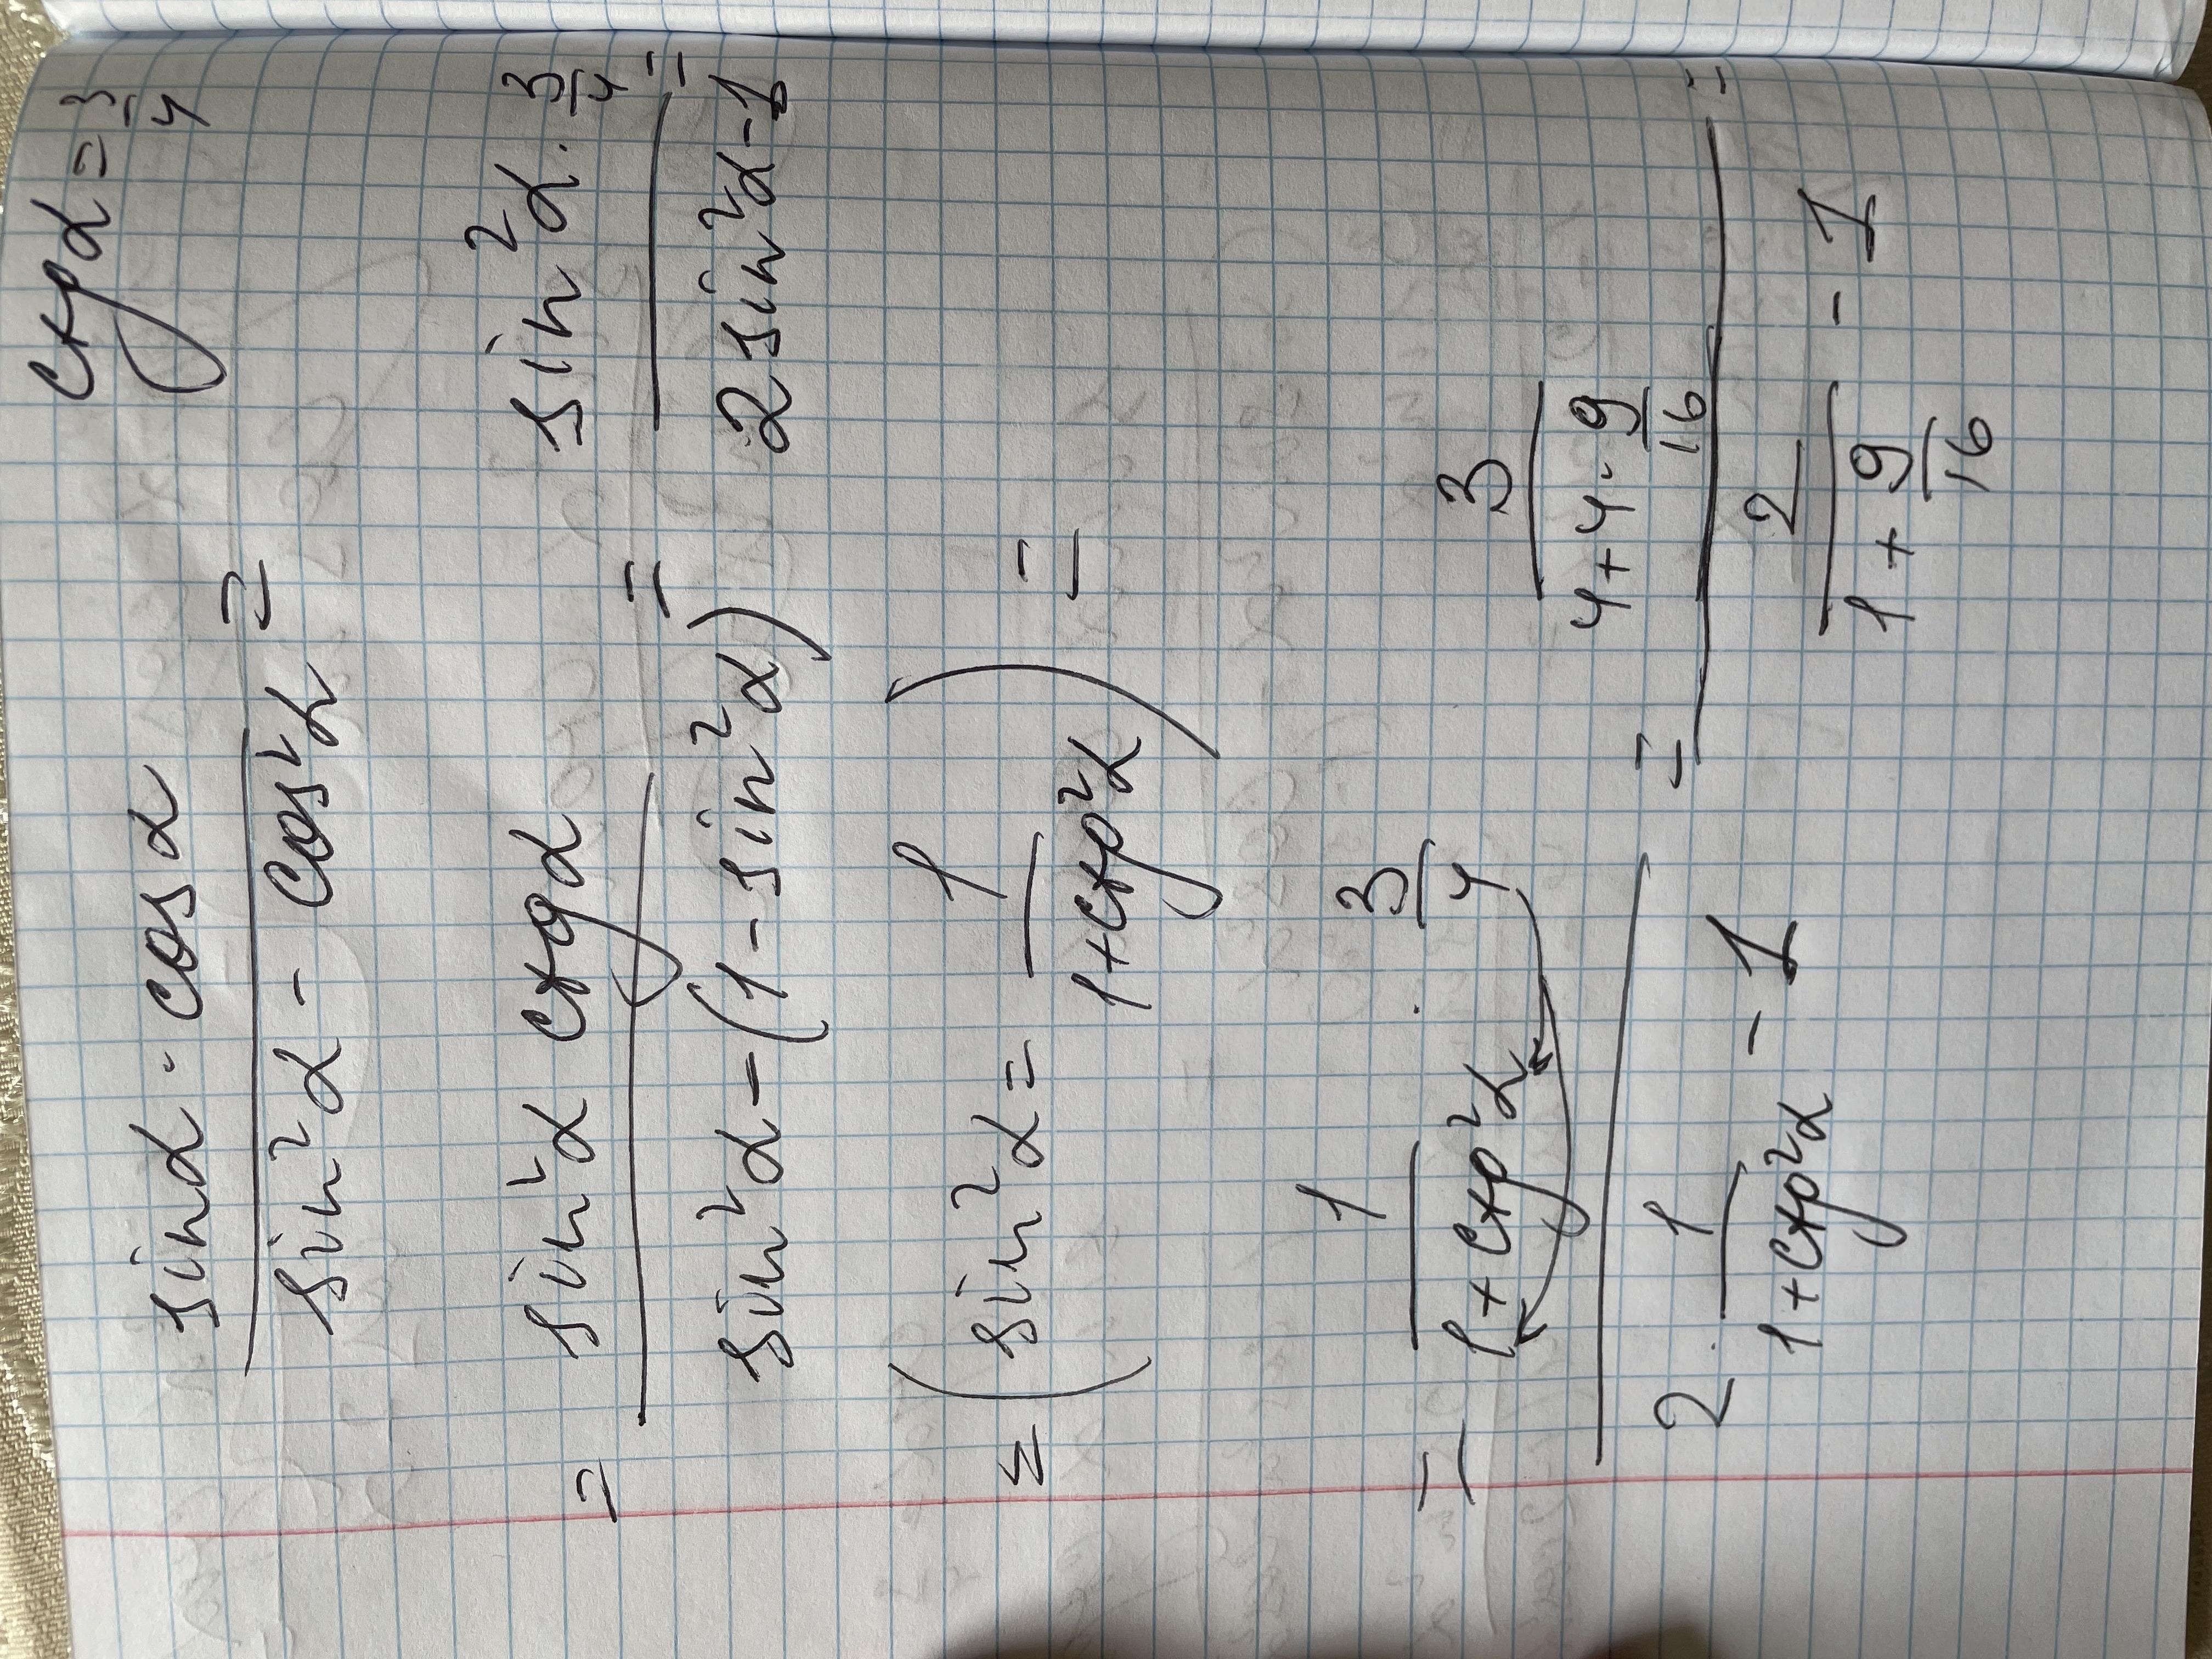 ctgα = 3/4
sinα · cosα / sin²α - cos²α =
= sin²α ctgα / sin²α - (1 - sin²α) = sin²α · 3/4 / 2sin²α - 1 =
= (sin²α = 1 / 1 + ctg²α) =
= 1 / 1 + ctg²α · 3/4 / 2 · 1 / 1 + ctg²α - 1 = 3 / 4 + 4 · 9/16 / 2 / 1 + 9/16 - 1 =